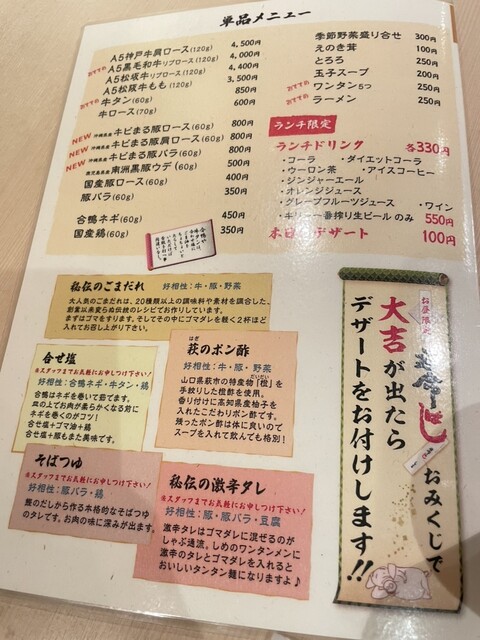 単品メニュー
A5神戸牛肩ロース(120g) 4,500円
おすすめ A5黒毛和牛リブロース(120g) 4,000円
A5松坂牛リブロース(120g) 4,400円
A5松阪牛もも(120g) 3,500円
おすすめ 牛タン(60g) 850円
牛ロース(70g) 600円
NEW 沖縄県産 キビまる豚ロース(60g) 800円
NEW 沖縄県産 キビまる豚肩ロース(60g) 800円
NEW 沖縄県産 キビまる豚バラ(60g) 800円
鹿児島県産 南洲黒豚ウデ(60g) 500円
国産豚ロース(60g) 400円
豚バラ(60g) 350円
合鴨ネギ(60g) 450円
国産鶏(60g) 350円
季節野菜盛り合せ 300円
えのき茸 100円
とろろ 250円
玉子スープ 200円
おすすめ ワンタン5つ 250円
おすすめ ラーメン 250円
ランチ限定
ランチドリンク 各330円
・コーラ ・ダイエットコーラ
・ウーロン茶 ・アイスコーヒー
・ジンジャーエール
・オレンジジュース
・グレープフルーツジュース ・ワイン
・キリン一番搾り生ビール のみ 550円
本日のデザート 100円
秘伝のごまだれ 好相性:牛・豚・野菜
大人気のごまだれは、20種類以上の調味料や素材を調合した、
創業以来変らぬ伝統のレシピでお作りしています。
まずはゴマをすります。そしてその中にゴマダレを軽く2杯ほど
入れてお召し上がり下さい。
合せ塩
※スタッフまでお気軽にお申しつけ下さい!
好相性:合鴨ネギ・牛タン・鶏
合鴨はネギを巻いて茹でます。
皿の上でお肉が柔らかくなる前に
ネギを巻くのがコツ!
合せ塩+ゴマ油+鶏
合せ塩+豚もまた美味です。
萩のポン酢
はぎ
好相性:牛・豚・野菜
だいだい
山口県萩市の特産物「橙」を
手絞りした橙酢を使用。
香り付けに高知県産柚子を
入れたこだわりポン酢です。
残ったポン酢は体に良いので
スープを入れて飲んでも格別!
そばつゆ
※スタッフまでお気軽にお申しつけ下さい!
好相性:豚バラ・鶏
鰹のだしから作る本格的なそばつゆ
のタレです。お肉の味に深みが出ます。
秘伝の激辛タレ
※スタッフまでお気軽にお申しつけ下さい!
好相性:豚・豚バラ・豆腐
激辛タレはゴマダレに混ぜるのが
しゃぶ通流。しめのワンタンメンに
激辛のタレとゴマダレを入れると
おいしいタンタン麺になりますよ♪
お昼限定
おみくじで
大吉が出たら
デザートをお付けします!!